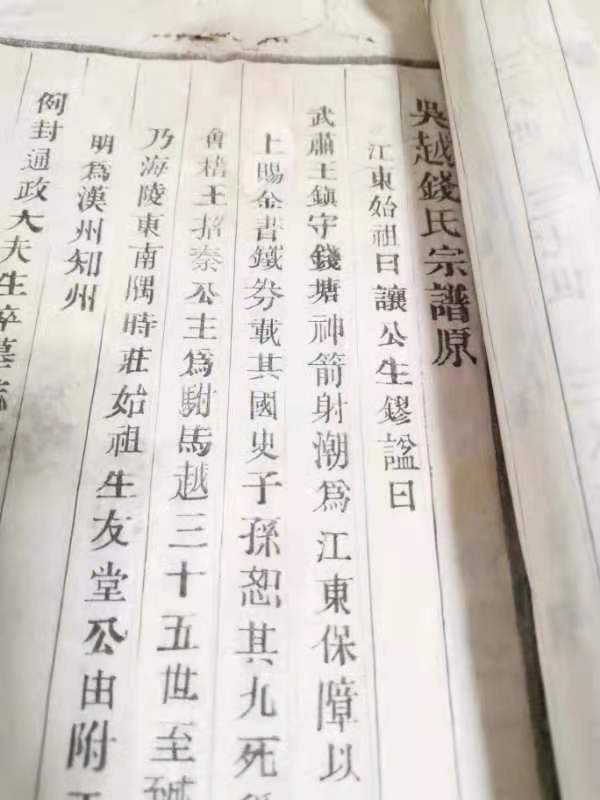 吳越錢氏宗譜原
江東始祖曰讓公生鏐諡曰
武肅王鎮守錢塘神箭射潮爲江東保障以
上賜金書鐵券載其國史子孫恕其九死
會稽王招秦公主爲駙馬越三十五世至誠
乃海陵東南隅時莊始祖生友堂公由附
明爲漢州知州
例封通政大夫生卒墓